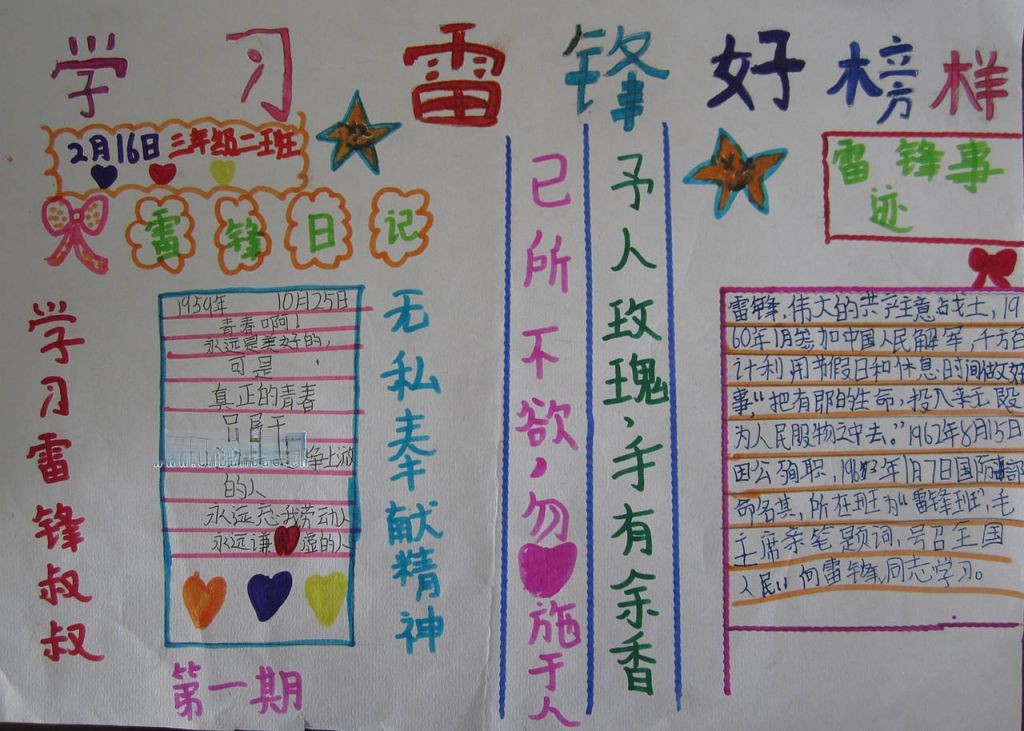 学习雷锋好榜样
2月16日三年级二班
雷锋日记
学习雷锋叔叔
1959年 10月25日
青春啊!
永远是美好的,
可是,
真正的青春
只属于
争上游
的人
永远忘我劳动
永远谦虚的人
无私奉献精神
第一期
己所不欲,勿施于人
予人玫瑰,手有余香
雷锋事
迹
雷锋,伟大的共产主意战士,19
60年1月参加中国人民解军,千方百
计利用节假日和休息时间做好
事,“把有郎的生命,投入未主段
为人民服物之中去。”1962年8月15日
因公殉职,1963年1月7日国防部
命名其,所在班为“雷锋班”,毛
主席亲笔题词,号召全国
人民:向雷锋同志学习。